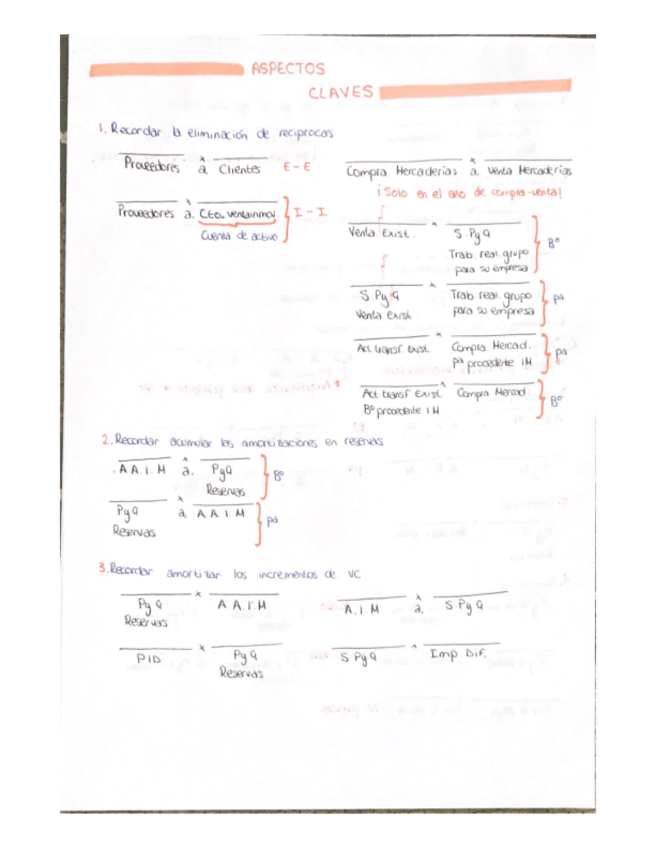 ASPECTOS
CLAVES
1. Recordar la eliminación de reciprocas
Proveedores a Clientes E-E
Compra Mercaderias a Venta Mercaderias
¡Solo en el año de compra-venta!
Proveedores a Cto. ventainmov I-I
Cuenta de activo
Venta Exist. S.PyG Bº
Trab. real. grupo
para su empresa
S.PyG Trab real. grupo pª
Venta Exist. para su empresa
Act transf. exist. Compra Mercad. pª
pª procedente IM
Act transf Exist. Compra Mercad. Bº
Bº procedente IM
2. Recordar acumular las amortizaciones en reservas
A A. I. M a. PyG Bº
Reservas
PyG a A A. I. M pª
Reservas
3. Recordar amortizar los incrementos de VC
PyG A A I.M
Reservas
A.I M a. S PyG
PID PyG
Reservas
S PyG Imp Dif.